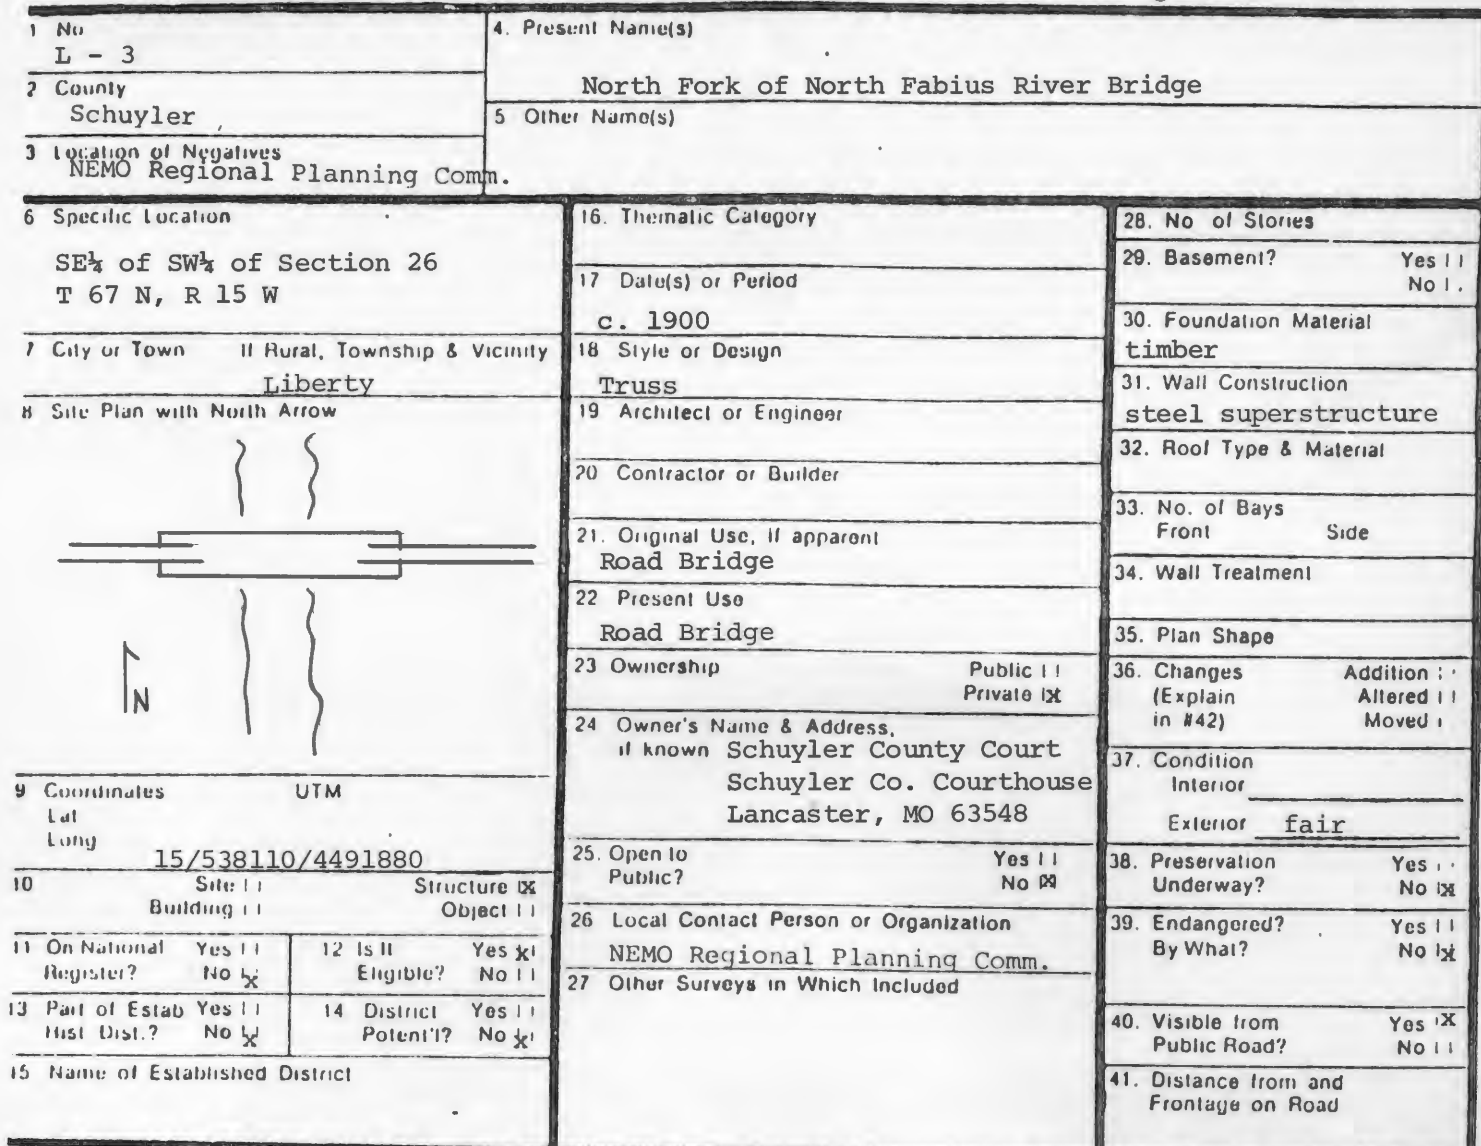 1 No
L - 3
2 County
Schuyler
3 Location of Negatives
NEMO Regional Planning Comm.
4. Present Name(s)
North Fork of North Fabius River Bridge
5 Other Name(s)
6 Specific Location
SE¼ of SW¼ of Section 26
T 67 N, R 15 W
7 City or Town If Rural, Township & Vicinity
Liberty
8 Site Plan with North Arrow
N
9 Coordinates UTM
Lat
Long
15/538110/4491880
10 Site Structure X
Building Object
11 On National Yes
Register? No X
12 Is It Yes X
Eligible? No
13 Part of Estab Yes
Hist Dist.? No X
14 District Yes
Potent'l? No X
15 Name of Established District
16. Thematic Category
17 Date(s) or Period
c. 1900
18 Style or Design
Truss
19 Architect or Engineer
20 Contractor or Builder
21. Original Use, if apparent
Road Bridge
22 Present Use
Road Bridge
23 Ownership Public
Private X
24 Owner's Name & Address,
if known Schuyler County Court
Schuyler Co. Courthouse
Lancaster, MO 63548
25. Open to Yes
Public? No X
26 Local Contact Person or Organization
NEMO Regional Planning Comm.
27 Other Surveys in Which Included
28. No of Stories
29. Basement? Yes
No
30. Foundation Material
timber
31. Wall Construction
steel superstructure
32. Roof Type & Material
33. No. of Bays
Front Side
34. Wall Treatment
35. Plan Shape
36. Changes Addition
(Explain Altered
in #42) Moved
37. Condition
Interior
Exterior fair
38. Preservation Yes
Underway? No X
39. Endangered? Yes
By What? No X
40. Visible from Yes X
Public Road? No
41. Distance from and
Frontage on Road